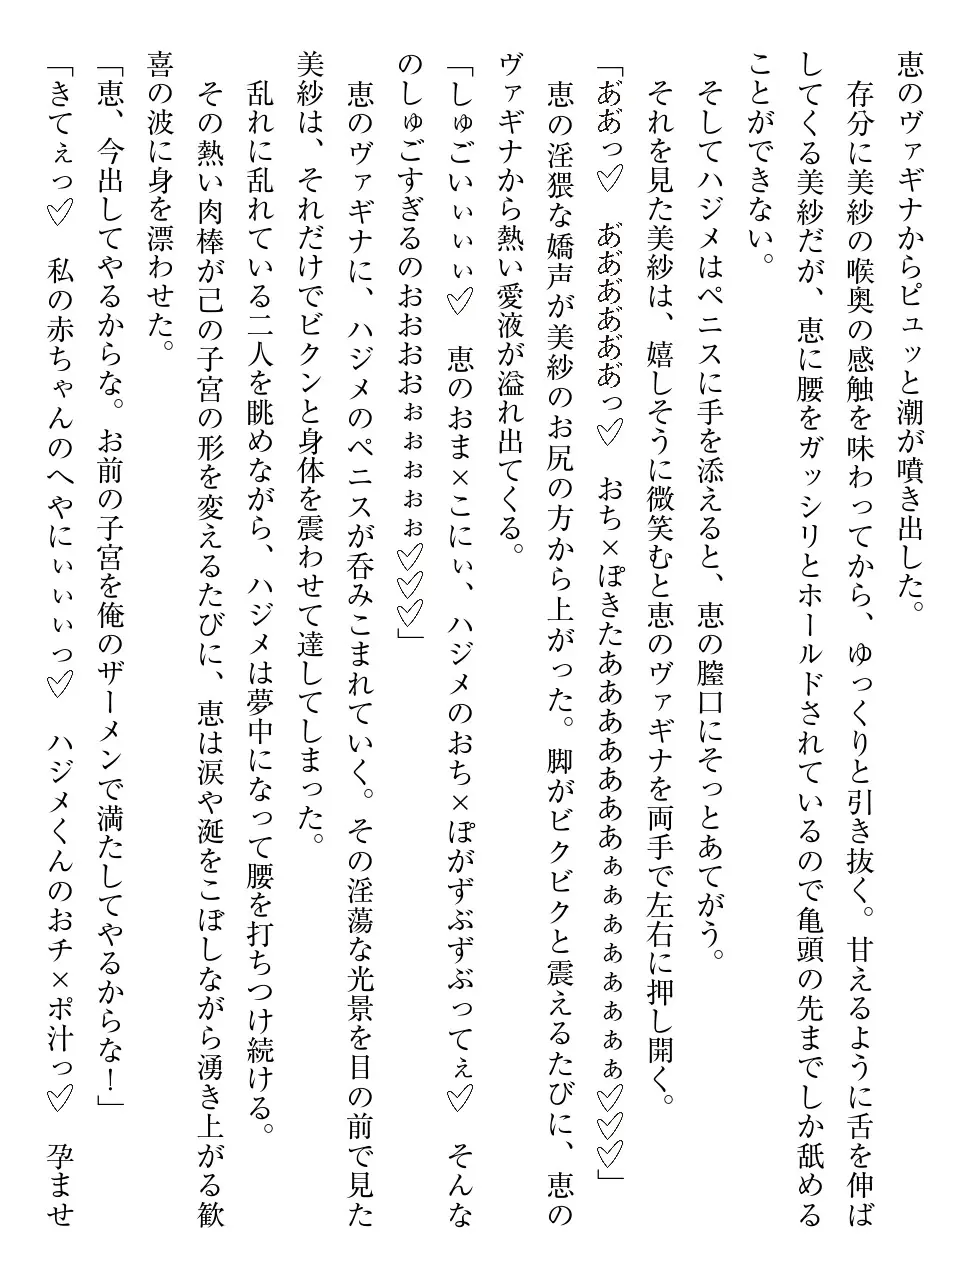 恵のヴァギナからピュッと潮が噴き出した。
存分に美紗の喉奥の感触を味わってから、ゆっくりと引き抜く。甘えるように舌を伸ば
してくる美紗だが、恵に腰をガッシリとホールドされているので亀頭の先までしか舐める
ことができない。
そしてハジメはペニスに手を添えると、恵の膣口にそっとあてがう。
それを見た美紗は、嬉しそうに微笑むと恵のヴァギナを両手で左右に押し開く。
「あ゙あ゙っ♡　あ゙あ゙あ゙あ゙あ゙あ゙っ♡　おち×ぽきたああああああああぁぁぁぁぁぁぁぁ♡♡♡」
恵の淫猥な嬌声が美紗のお尻の方から上がった。脚がビクビクと震えるたびに、恵の
ヴァギナから熱い愛液が溢れ出てくる。
「しゅごいぃぃぃ♡　恵のおま×こにぃ、ハジメのおち×ぽがずぶずぶってぇ♡　そんな
のしゅごすぎるのおおおおぉぉぉぉぉ♡♡♡」
恵のヴァギナに、ハジメのペニスが呑みこまれていく。その淫蕩な光景を目の前で見た
美紗は、それだけでビクンと身体を震わせて達してしまった。
乱れに乱れている二人を眺めながら、ハジメは夢中になって腰を打ちつけ続ける。
その熱い肉棒が己の子宮の形を変えるたびに、恵は涙や涎をこぼしながら湧き上がる歓
喜の波に身を漂わせた。
「恵、今出してやるからな。お前の子宮を俺のザーメンで満たしてやるからな！」
「きてぇっ♡　私の赤ちゃんのへやにぃぃぃっ♡　ハジメくんのおチ×ポ汁っ♡　孕ませ